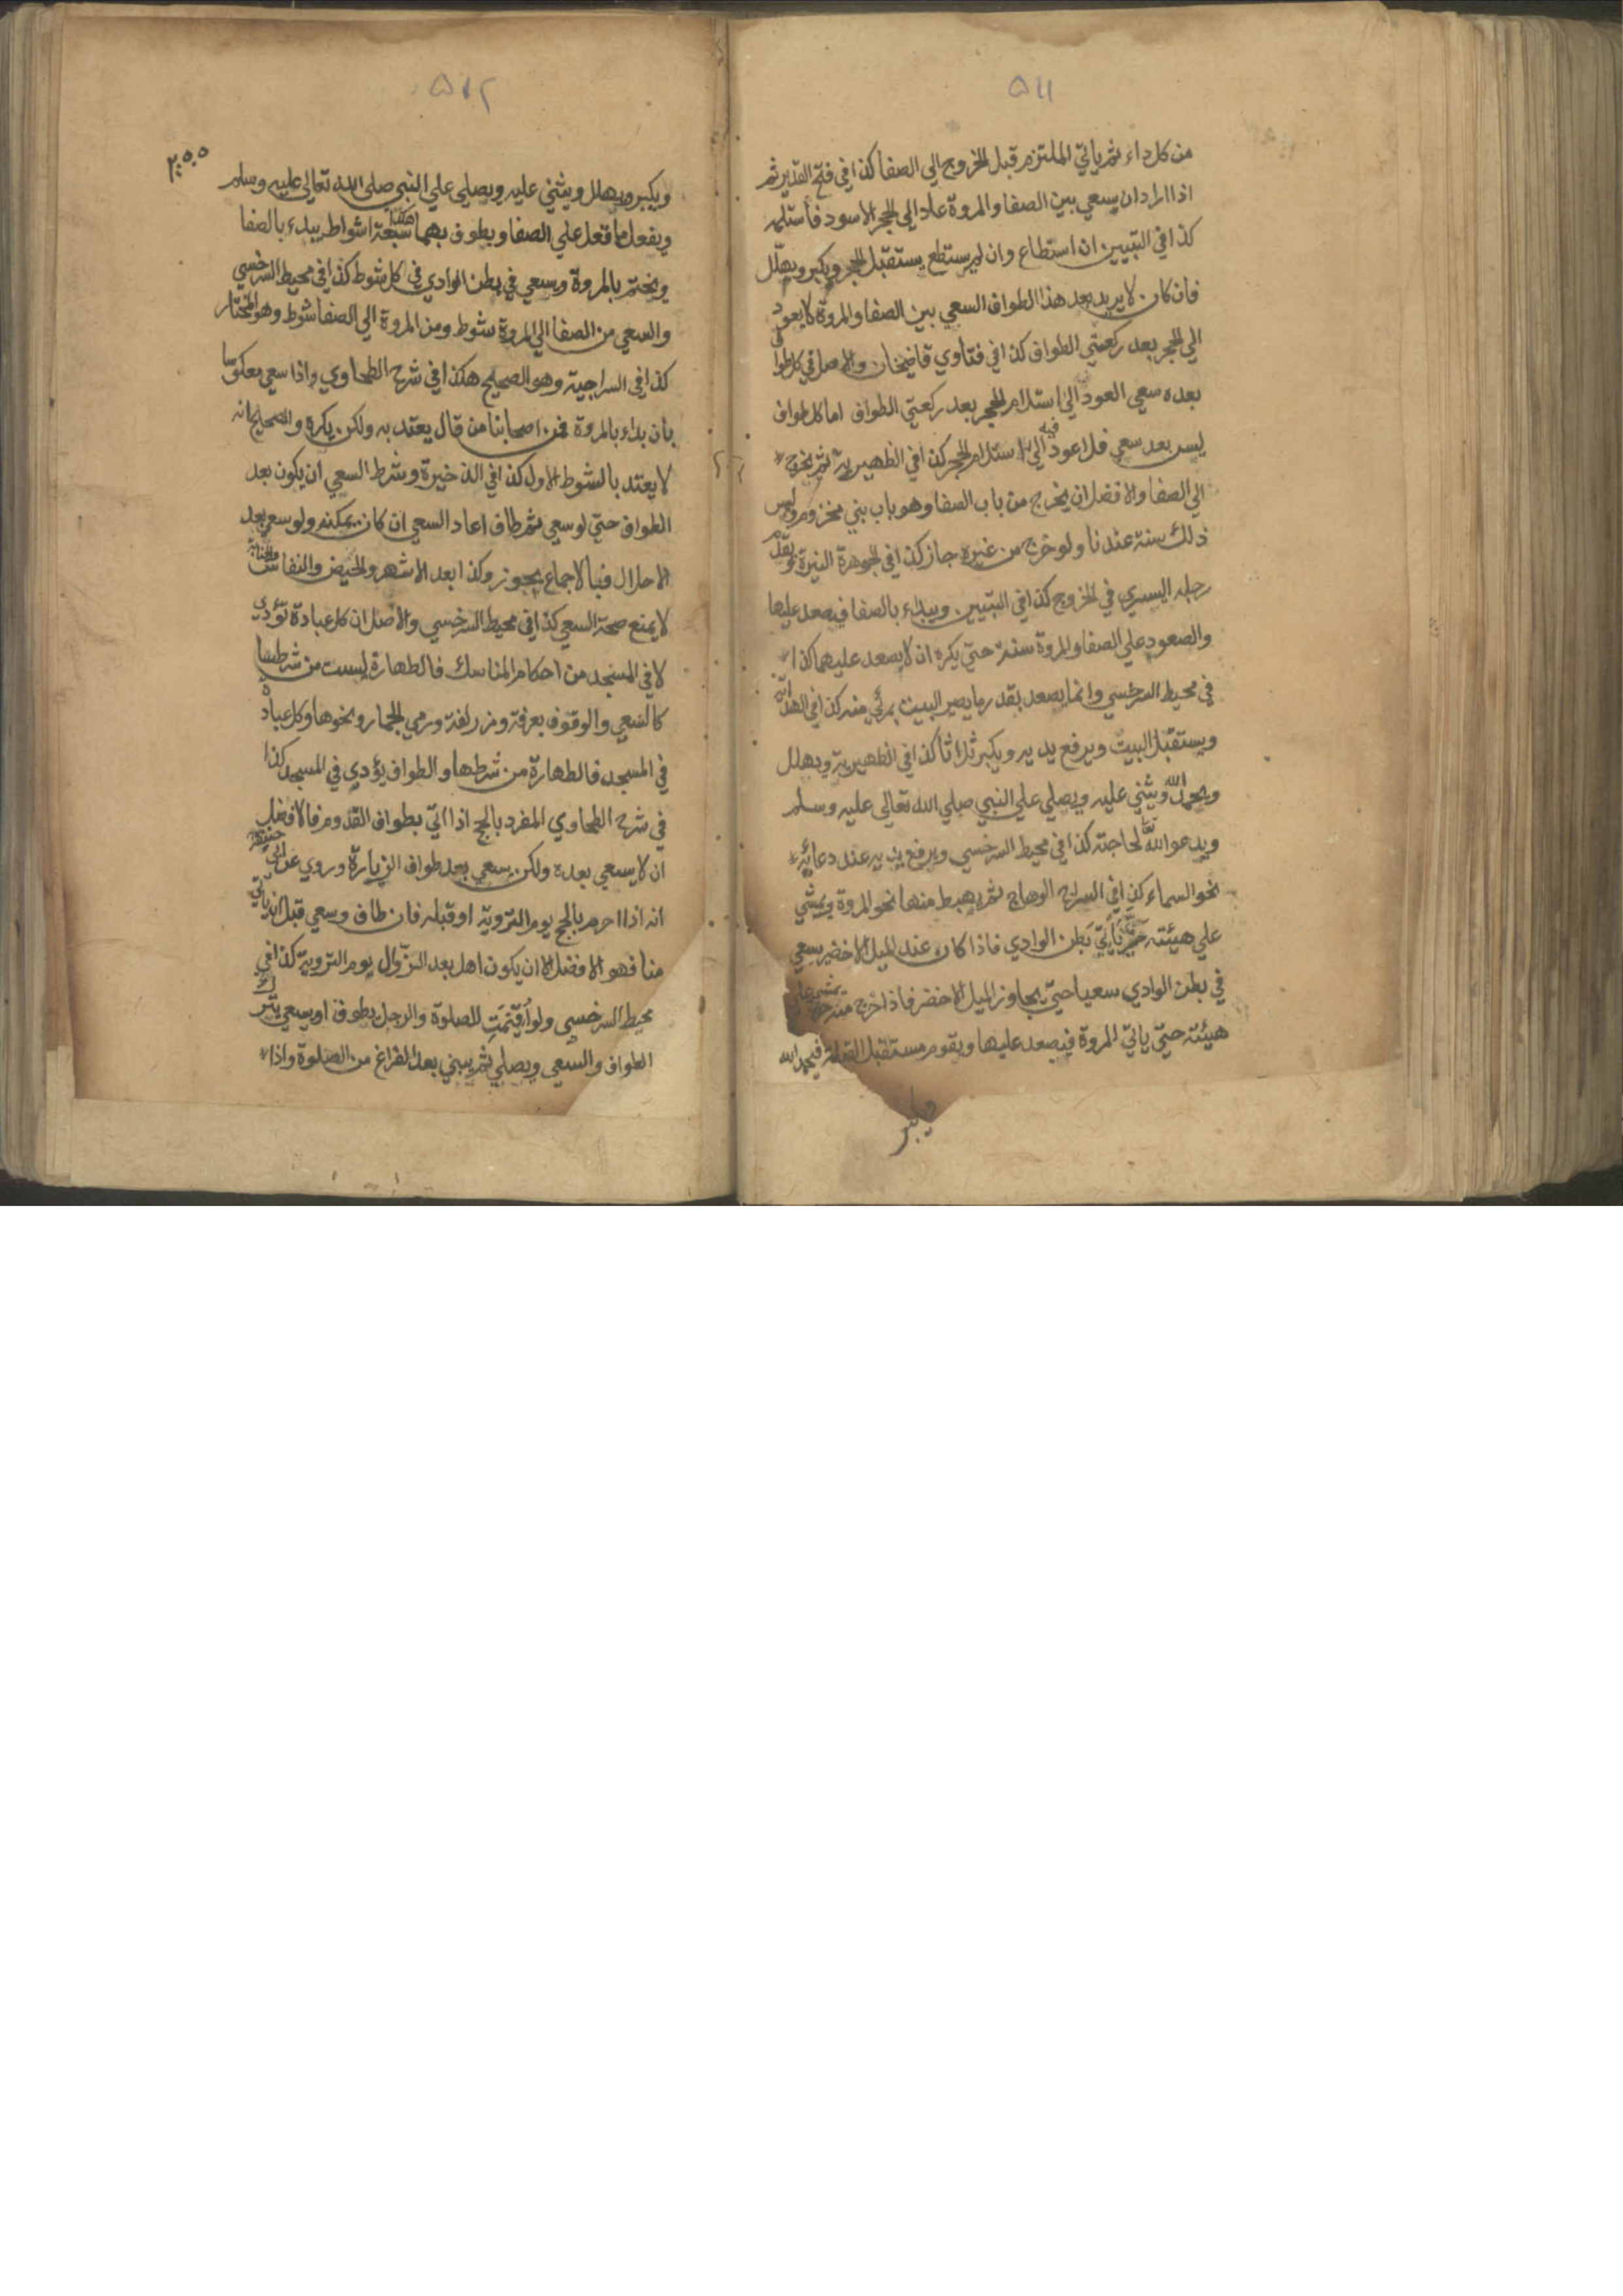 ۵۱۱
من كل داء ثم ياتي الملتزم قبل الخروج الي الصفا كذا في فتح القدير ثم
اذا اراد ان يسعي بين الصفا والمروة عاد الي الحجر الاسود فاستلمه
كذا في التبيين ان استطاع وان لم يستطع يستقبل الحجر ويكبر ويهلل
فان كان لا يريد بعد هذا الطواف السعي بين الصفا والمروة لا يعود
الي الحجر بعد ركعتي الطواف كذا في فتاوي قاضيخان والاصل في كل طواف
بعده سعي العود الي استلام الحجر بعد ركعتي الطواف اما كل طواف
ليس بعد سعي فلا عود فيه الي استلام الحجر كذا في الظهيرية ثم يخرج
الي الصفا والافضل ان يخرج من باب الصفا وهو باب بني مخزوم وليس
ذلك سنة عندنا ولو خرج من غيره جاز كذا في الجوهرة النيرة ويقدم
رجله اليسري في الخروج كذا في التبيين ويبداء بالصفا فيصعد عليها
والصعود علي الصفا والمروة سنة حتي يكره ان لا يصعد عليهما كذا
في محيط السرخسي وانما يصعد بقدر ما يصير البيت بمرئي منه كذا في الهداية
ويستقبل البيت ويرفع يديه ويكبر ثلاثا كذا في الظهيرية ويهلل
ويحمد الله ويثني عليه ويصلي علي النبي صلي الله تعالي عليه وسلم
ويدعو الله لحاجته كذا في محيط السرخسي ويرفع يديه عند دعائه
نحو السماء كذا في السراج الوهاج ثم يهبط منها نحو المروة ويمشي
علي هيئته حتي ياتي بطن الوادي فاذا كان عند الميل الاخضر يسعي
في بطن الوادي سعيا حتي يجاوز الميل الاخضر فاذا خرج منه يمشي علي
هيئته حتي ياتي المروة فيصعد عليها ويقوم مستقبل القبلة فيحمد الله
ويكبر
۵۱۲
ويكبر ويهلل ويثني عليه ويصلي علي النبي صلي الله تعالي عليه وسلم
ويفعل ما فعل علي الصفا ويطوف بهما هكذا سبعة اشواط يبداء بالصفا
ويختم بالمروة ويسعي في بطن الوادي في كل شوط كذا في محيط السرخسي
والسعي من الصفا الي المروة شوط ومن المروة الي الصفا شوط وهو المختار
كذا في السراجية وهو الصحيح هكذا في شرح الطحاوي واذا سعي معكوسا
بان بداء بالمروة فمن اصحابنا من قال يعتد به ولكن يكره والصحيح انه
لا يعتد بالشوط الاول كذا في الذخيرة وشرط السعي ان يكون بعد
الطواف حتي لو سعي ثم طاف اعاد السعي ان كان بمكنه ولو سعي بعد
الاحلال فبالاجماع يجوز وكذا بعد الاشهر والحيض والنفاس والجنابة
لا يمنع صحة السعي كذا في محيط السرخسي والاصل ان كل عبادة تؤدي
لا في المسجد من احكام المناسك فالطهارة ليست من شرطها
كالسعي والوقوف بعرفة ومزدلفة ورمي الجمار ونحوها وكل عبادة
في المسجد فالطهارة من شرطها والطواف يؤدي في المسجد كذا
في شرح الطحاوي المفرد بالحج اذا اتي بطواف القدوم فالافضل
ان لا يسعي بعده ولكن يسعي بعد طواف الزيارة وروي عن ابي حنيفة
انه اذا احرم بالحج يوم التروية او قبله فان طاف وسعي قبل ان ياتي
منا فهو الافضل الا ان يكون اهل بعد الزوال يوم التروية كذا في
محيط السرخسي ولو اقيمت للصلوة والرجل يطوف او يسعي يترك
الطواف والسعي ويصلي ثم يبني بعد الفراغ من الصلوة واذا